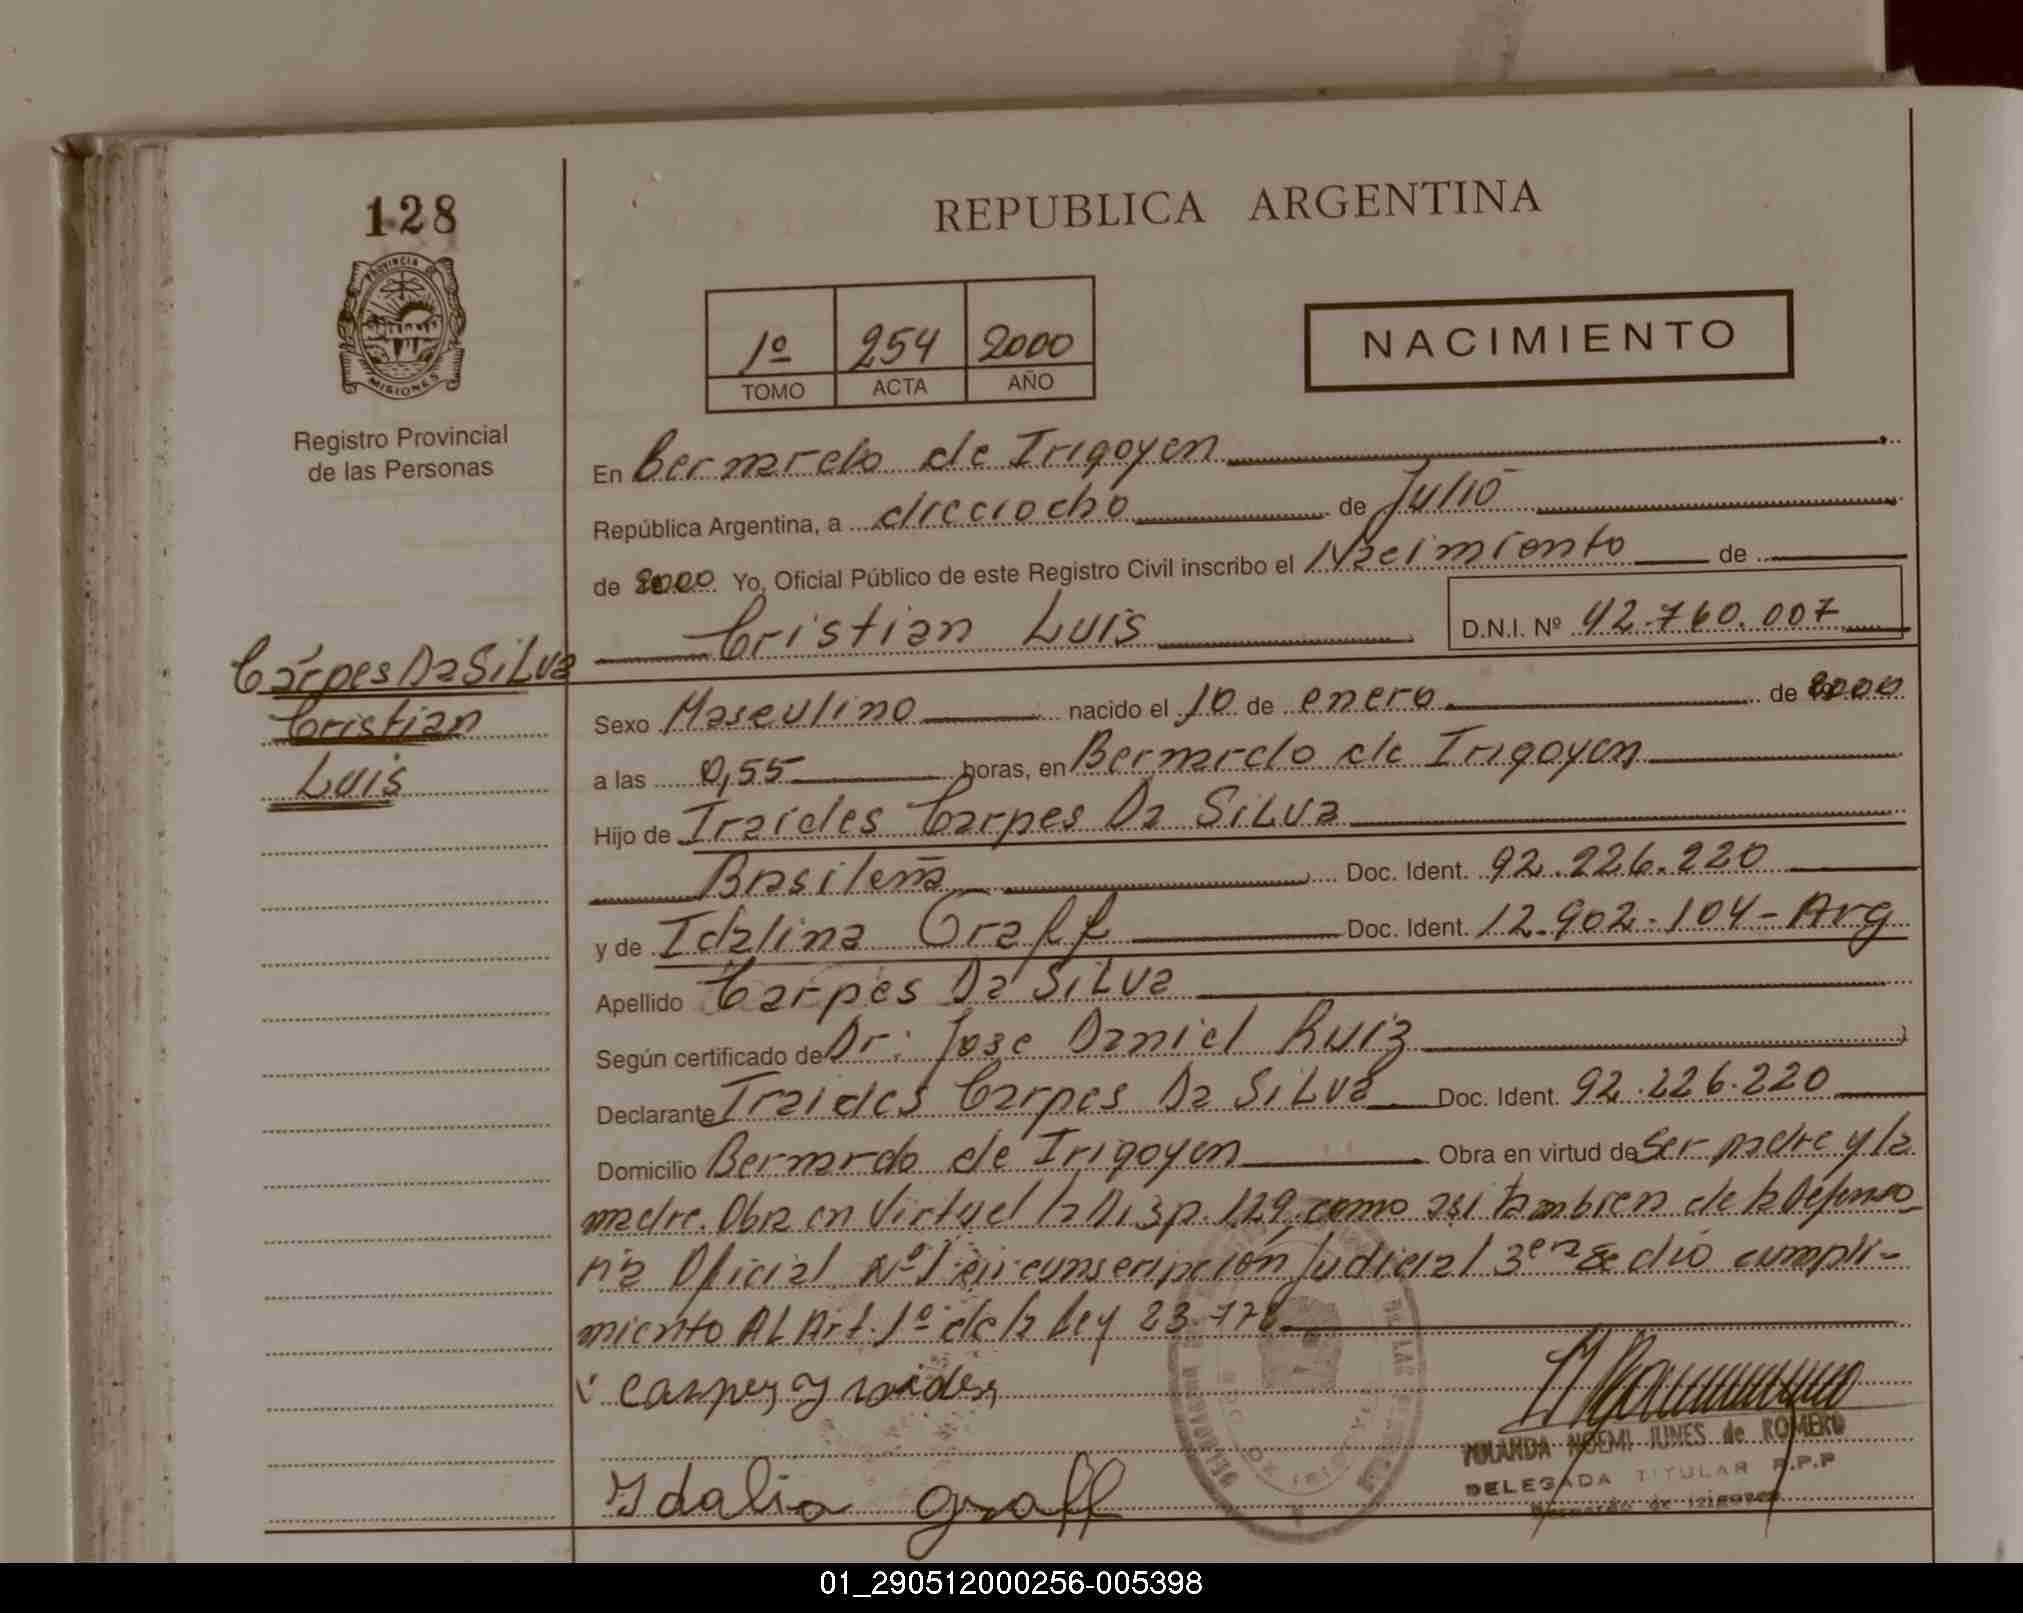 128
PROVINCIA DE
MISIONES
Registro Provincial
de las Personas
Carpes Da Silva
Cristian
Luis
REPUBLICA ARGENTINA
1º 254 2000
TOMO ACTA AÑO
NACIMIENTO
En Bernardo de Irigoyen
República Argentina, a dieciocho de Julio
de 2000 Yo, Oficial Público de este Registro Civil inscribo el Nacimiento de
Cristian Luis D.N.I. Nº 42.760.007
Sexo Masculino nacido el 10 de enero de 2000
a las 0,55 horas, en Bernardo de Irigoyen
Hijo de Iraides Carpes Da Silva
Brasileña Doc. Ident. 92.226.220
y de Idalina Graff Doc. Ident. 12.902.104-Arg
Apellido Carpes Da Silva
Según certificado de Dr: Jose Daniel Ruiz
Declarante Iraides Carpes Da Silva Doc. Ident. 92.226.220
Domicilio Bernardo de Irigoyen Obra en virtud de Ser padre y la
madre. Obra en Virtud la Disp. 129, como asi tambien de la Defenso-
ria Oficial Nº 1 circunscripción Judicial 3era Se dió cumpli-
miento AL Art. 1º de la Ley 23.776
Idalia graff
YOLANDA NOEMI JUNES de ROMERO
DELEGADA TITULAR R.P.P
Bernardo de Irigoyen
01_290512000256-005398